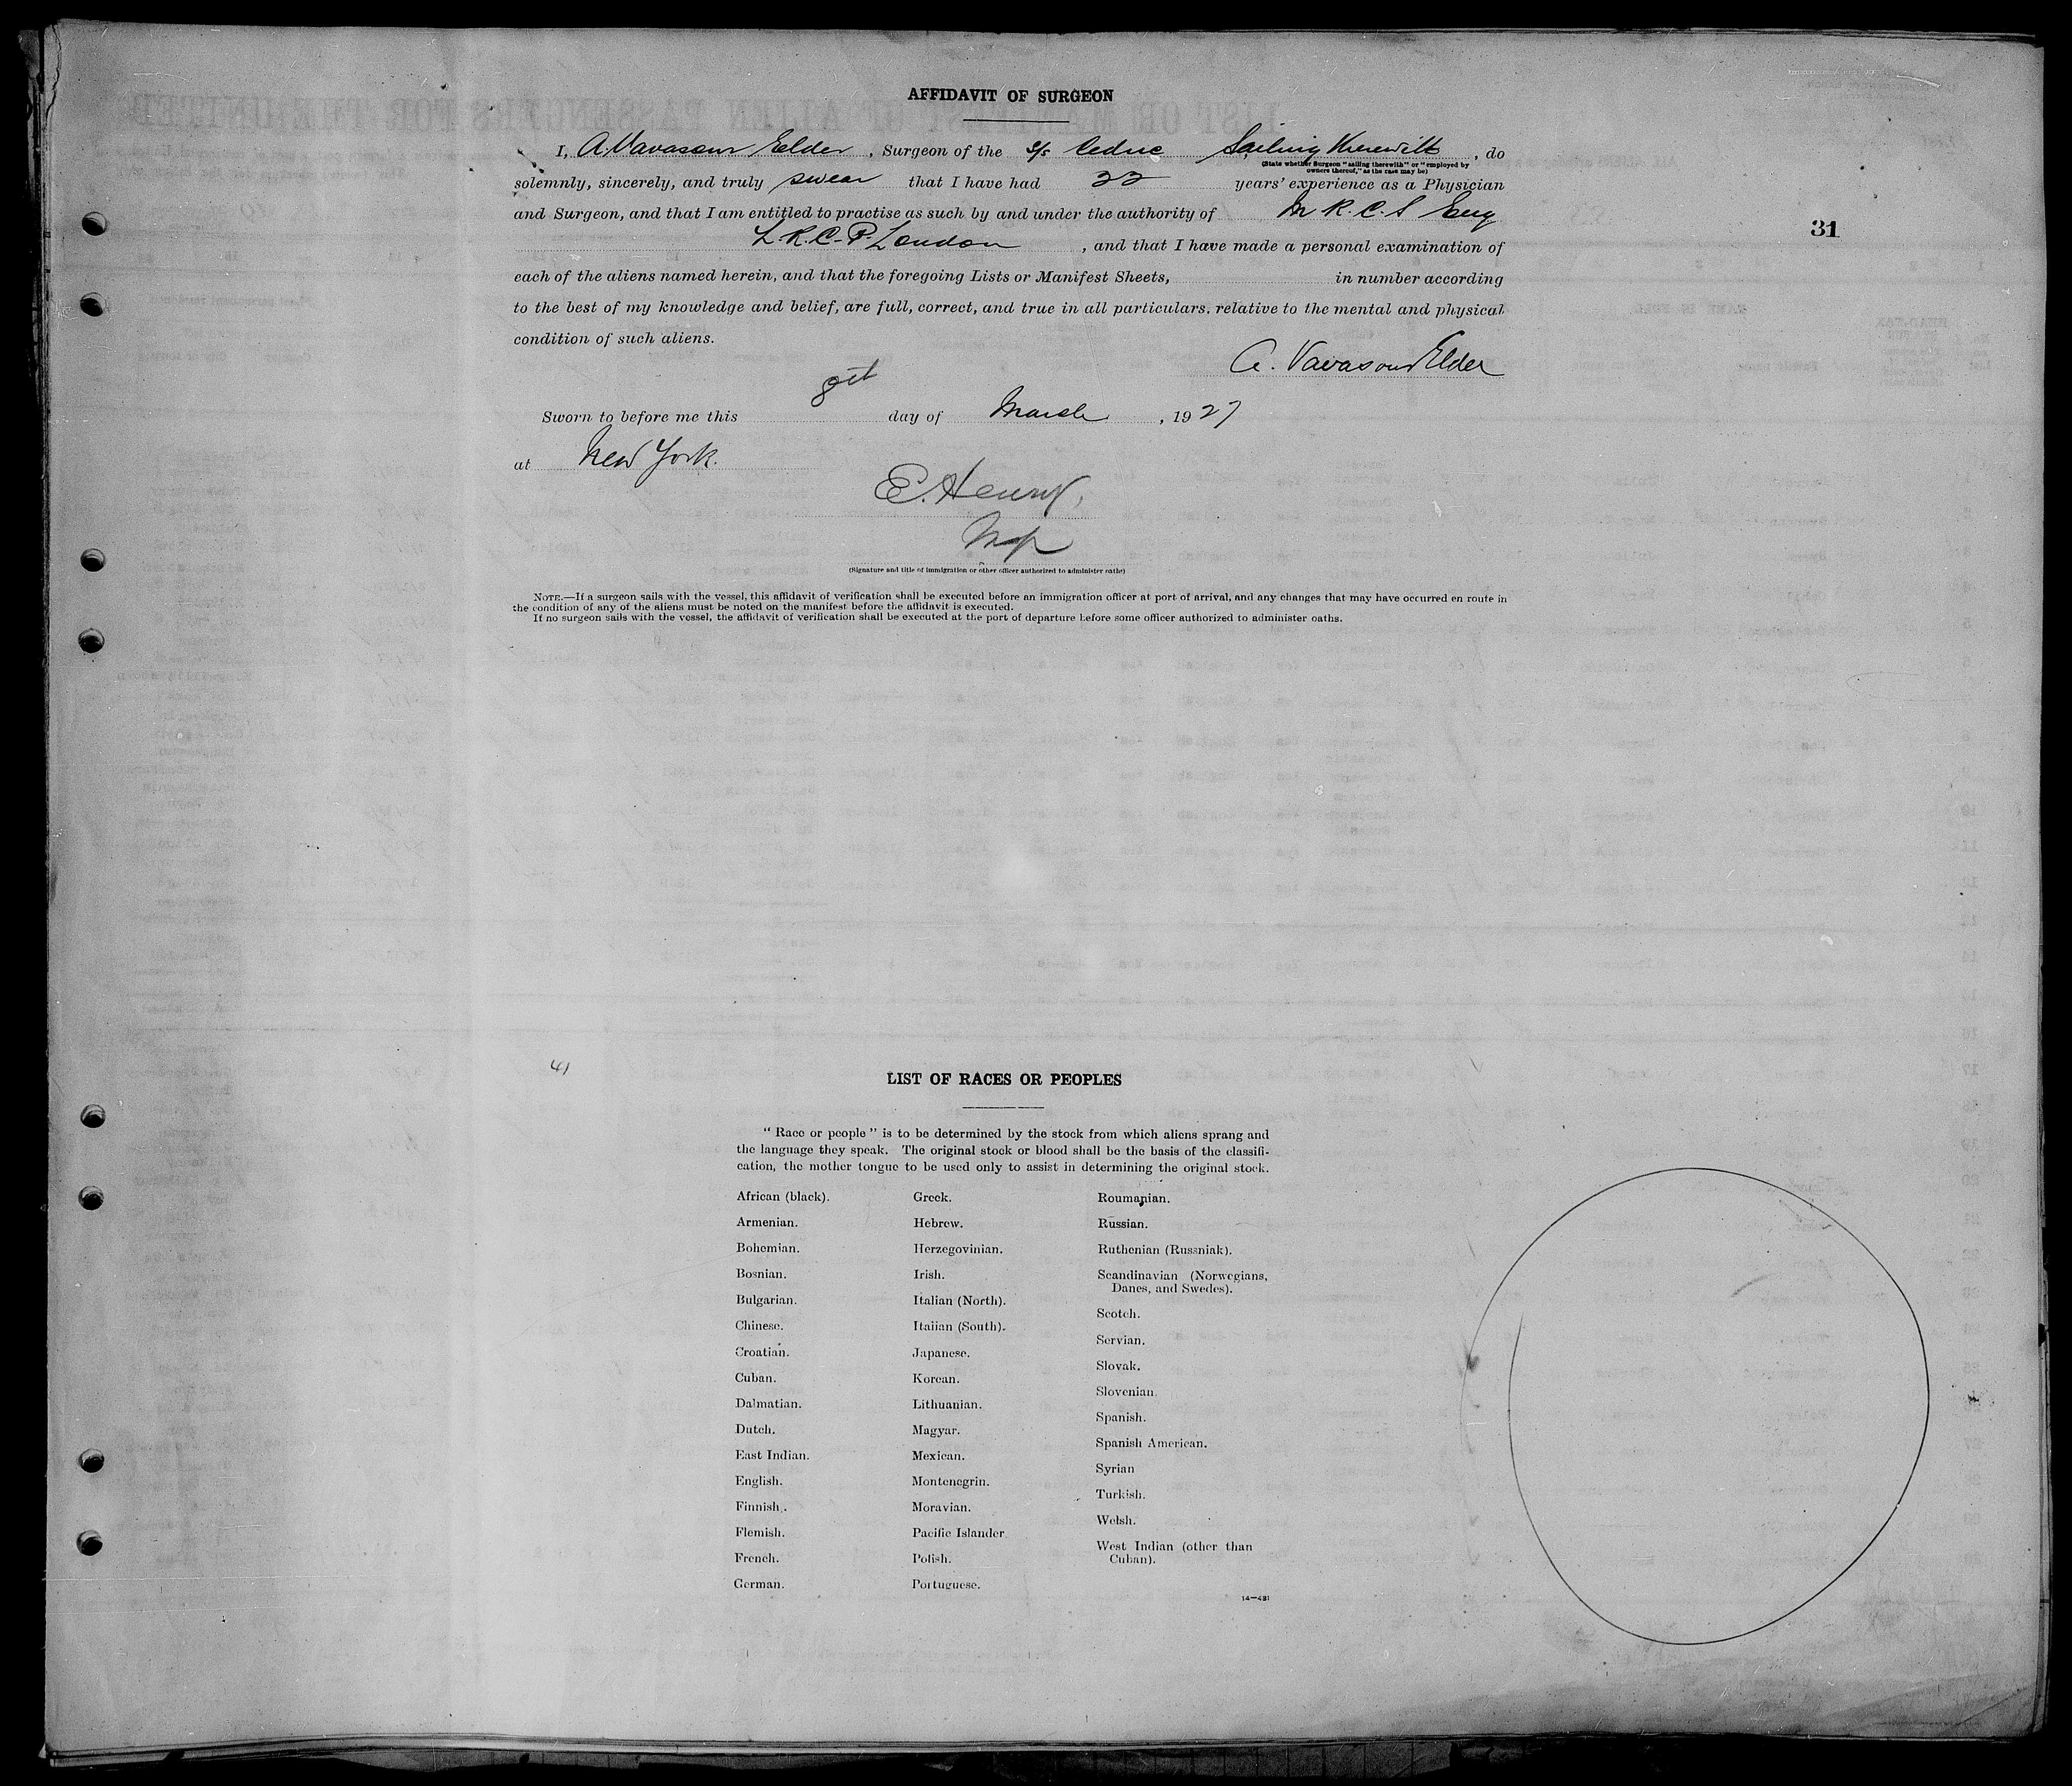 AFFIDAVIT OF SURGEON
I, A. Vavasour Elder, Surgeon of the s/s Cedric Sailing therewith, do
(State whether Surgeon "sailing therewith" or "employed by
owners thereof," as the case may be)
solemnly, sincerely, and truly swear that I have had 22 years' experience as a Physician
and Surgeon, and that I am entitled to practise as such by and under the authority of M.R.C.S Eng
31
L.R.C.P. London, and that I have made a personal examination of
each of the aliens named herein, and that the foregoing Lists or Manifest Sheets, in number according
to the best of my knowledge and belief, are full, correct, and true in all particulars, relative to the mental and physical
condition of such aliens.
A. Vavasour Elder
Sworn to before me this 8th day of March, 1927
at New York.
E. Henry,
(Signature and title of immigration or other officer authorized to administer oaths)
NOTE.—If a surgeon sails with the vessel, this affidavit of verification shall be executed before an immigration officer at port of arrival, and any changes that may have occurred en route in
the condition of any of the aliens must be noted on the manifest before the affidavit is executed.
If no surgeon sails with the vessel, the affidavit of verification shall be executed at the port of departure before some officer authorized to administer oaths.
41
LIST OF RACES OR PEOPLES
"Race or people" is to be determined by the stock from which aliens sprang and
the language they speak. The original stock or blood shall be the basis of the classifi-
cation, the mother tongue to be used only to assist in determining the original stock.
African (black).
Armenian.
Bohemian.
Bosnian.
Bulgarian.
Chinese.
Croatian.
Cuban.
Dalmatian.
Dutch.
East Indian.
English.
Finnish.
Flemish.
French.
German.
Greek.
Hebrew.
Herzegovinian.
Irish.
Italian (North).
Italian (South).
Japanese.
Korean.
Lithuanian.
Magyar.
Mexican.
Montenegrin.
Moravian.
Pacific Islander.
Polish.
Portuguese.
Roumanian.
Russian.
Ruthenian (Russniak).
Scandinavian (Norwegians,
Danes, and Swedes).
Scotch.
Servian.
Slovak.
Slovenian.
Spanish.
Spanish American.
Syrian
Turkish.
Welsh.
West Indian (other than
Cuban).
14—431